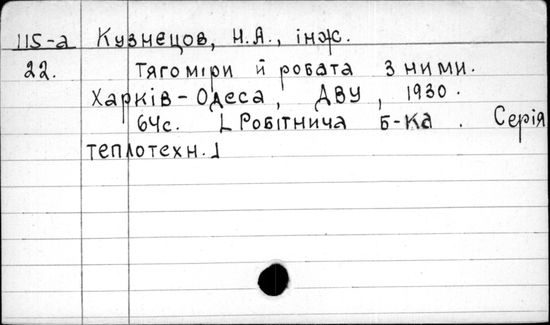 115-а Кузнєцов, Н.А., інж.
22. Тягоміри й робата з ними.
Харків - Одеса, ДВУ, 1930.
64с. [Робітнича б-ка. Серія
теплотехн.]